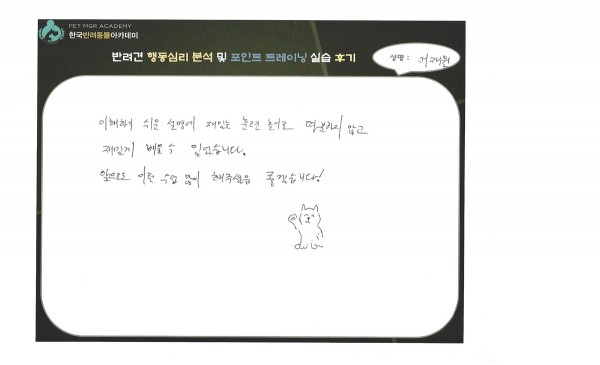 PET MGR ACADEMY
한국반려동물아카데미
반려견 행동심리 분석 및 포인트 트레이닝 실습 후기
성명 : 어재원
이해하기 쉬운 설명에 재밌는 훈련 놀이로 따분하지 않고
재밌게 배울 수 있었습니다.
앞으로도 이런 수업 많이 해주셨음 좋겠습니다!